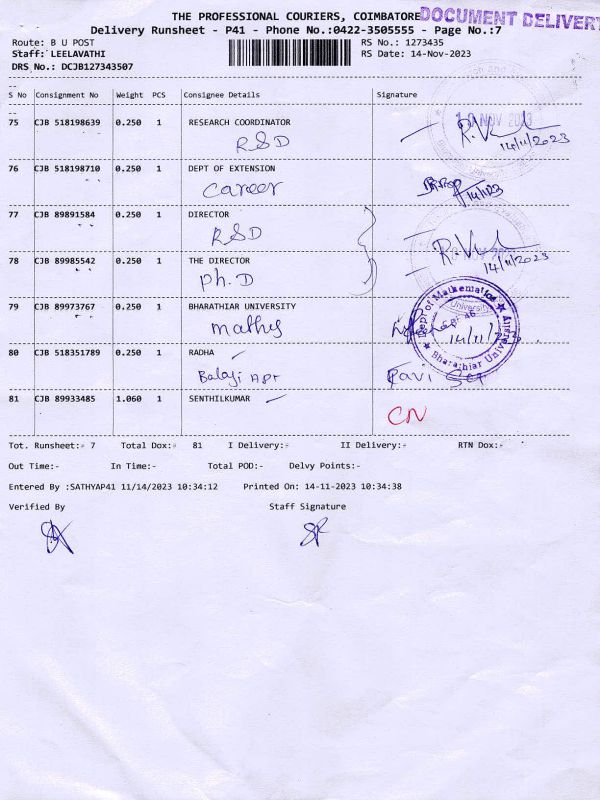 THE PROFESSIONAL COURIERS, COIMBATORE
DOCUMENT DELIVERY
Delivery Runsheet - P41 - Phone No.:0422-3505555 - Page No.:7
Route: B U POST
RS No.: 1273435
Staff: LEELAVATHI
RS Date: 14-Nov-2023
DRS No.: DCJB127343507
S No Consignment No Weight PCS Consignee Details Signature
75 CJB 518198639 0.250 1 RESEARCH COORDINATOR
RSD
10 NOV 2023
14/11/2023
76 CJB 518198710 0.250 1 DEPT OF EXTENSION
Career
14/11/23
77 CJB 89891584 0.250 1 DIRECTOR
RSD
78 CJB 89985542 0.250 1 THE DIRECTOR
Ph.D
14/11/2023
79 CJB 89973767 0.250 1 BHARATHIAR UNIVERSITY
maths
Dept of Mathematics
University
14/11/
Bharathiar Univ
80 CJB 518351789 0.250 1 RADHA
Balaji Apt
Ravi
81 CJB 89933485 1.060 1 SENTHILKUMAR
CN
Tot. Runsheet:- 7 Total Dox:- 81 I Delivery:- II Delivery:- RTN Dox:-
Out Time:- In Time:- Total POD:- Delvy Points:-
Entered By :SATHYAP41 11/14/2023 10:34:12 Printed On: 14-11-2023 10:34:38
Verified By Staff Signature